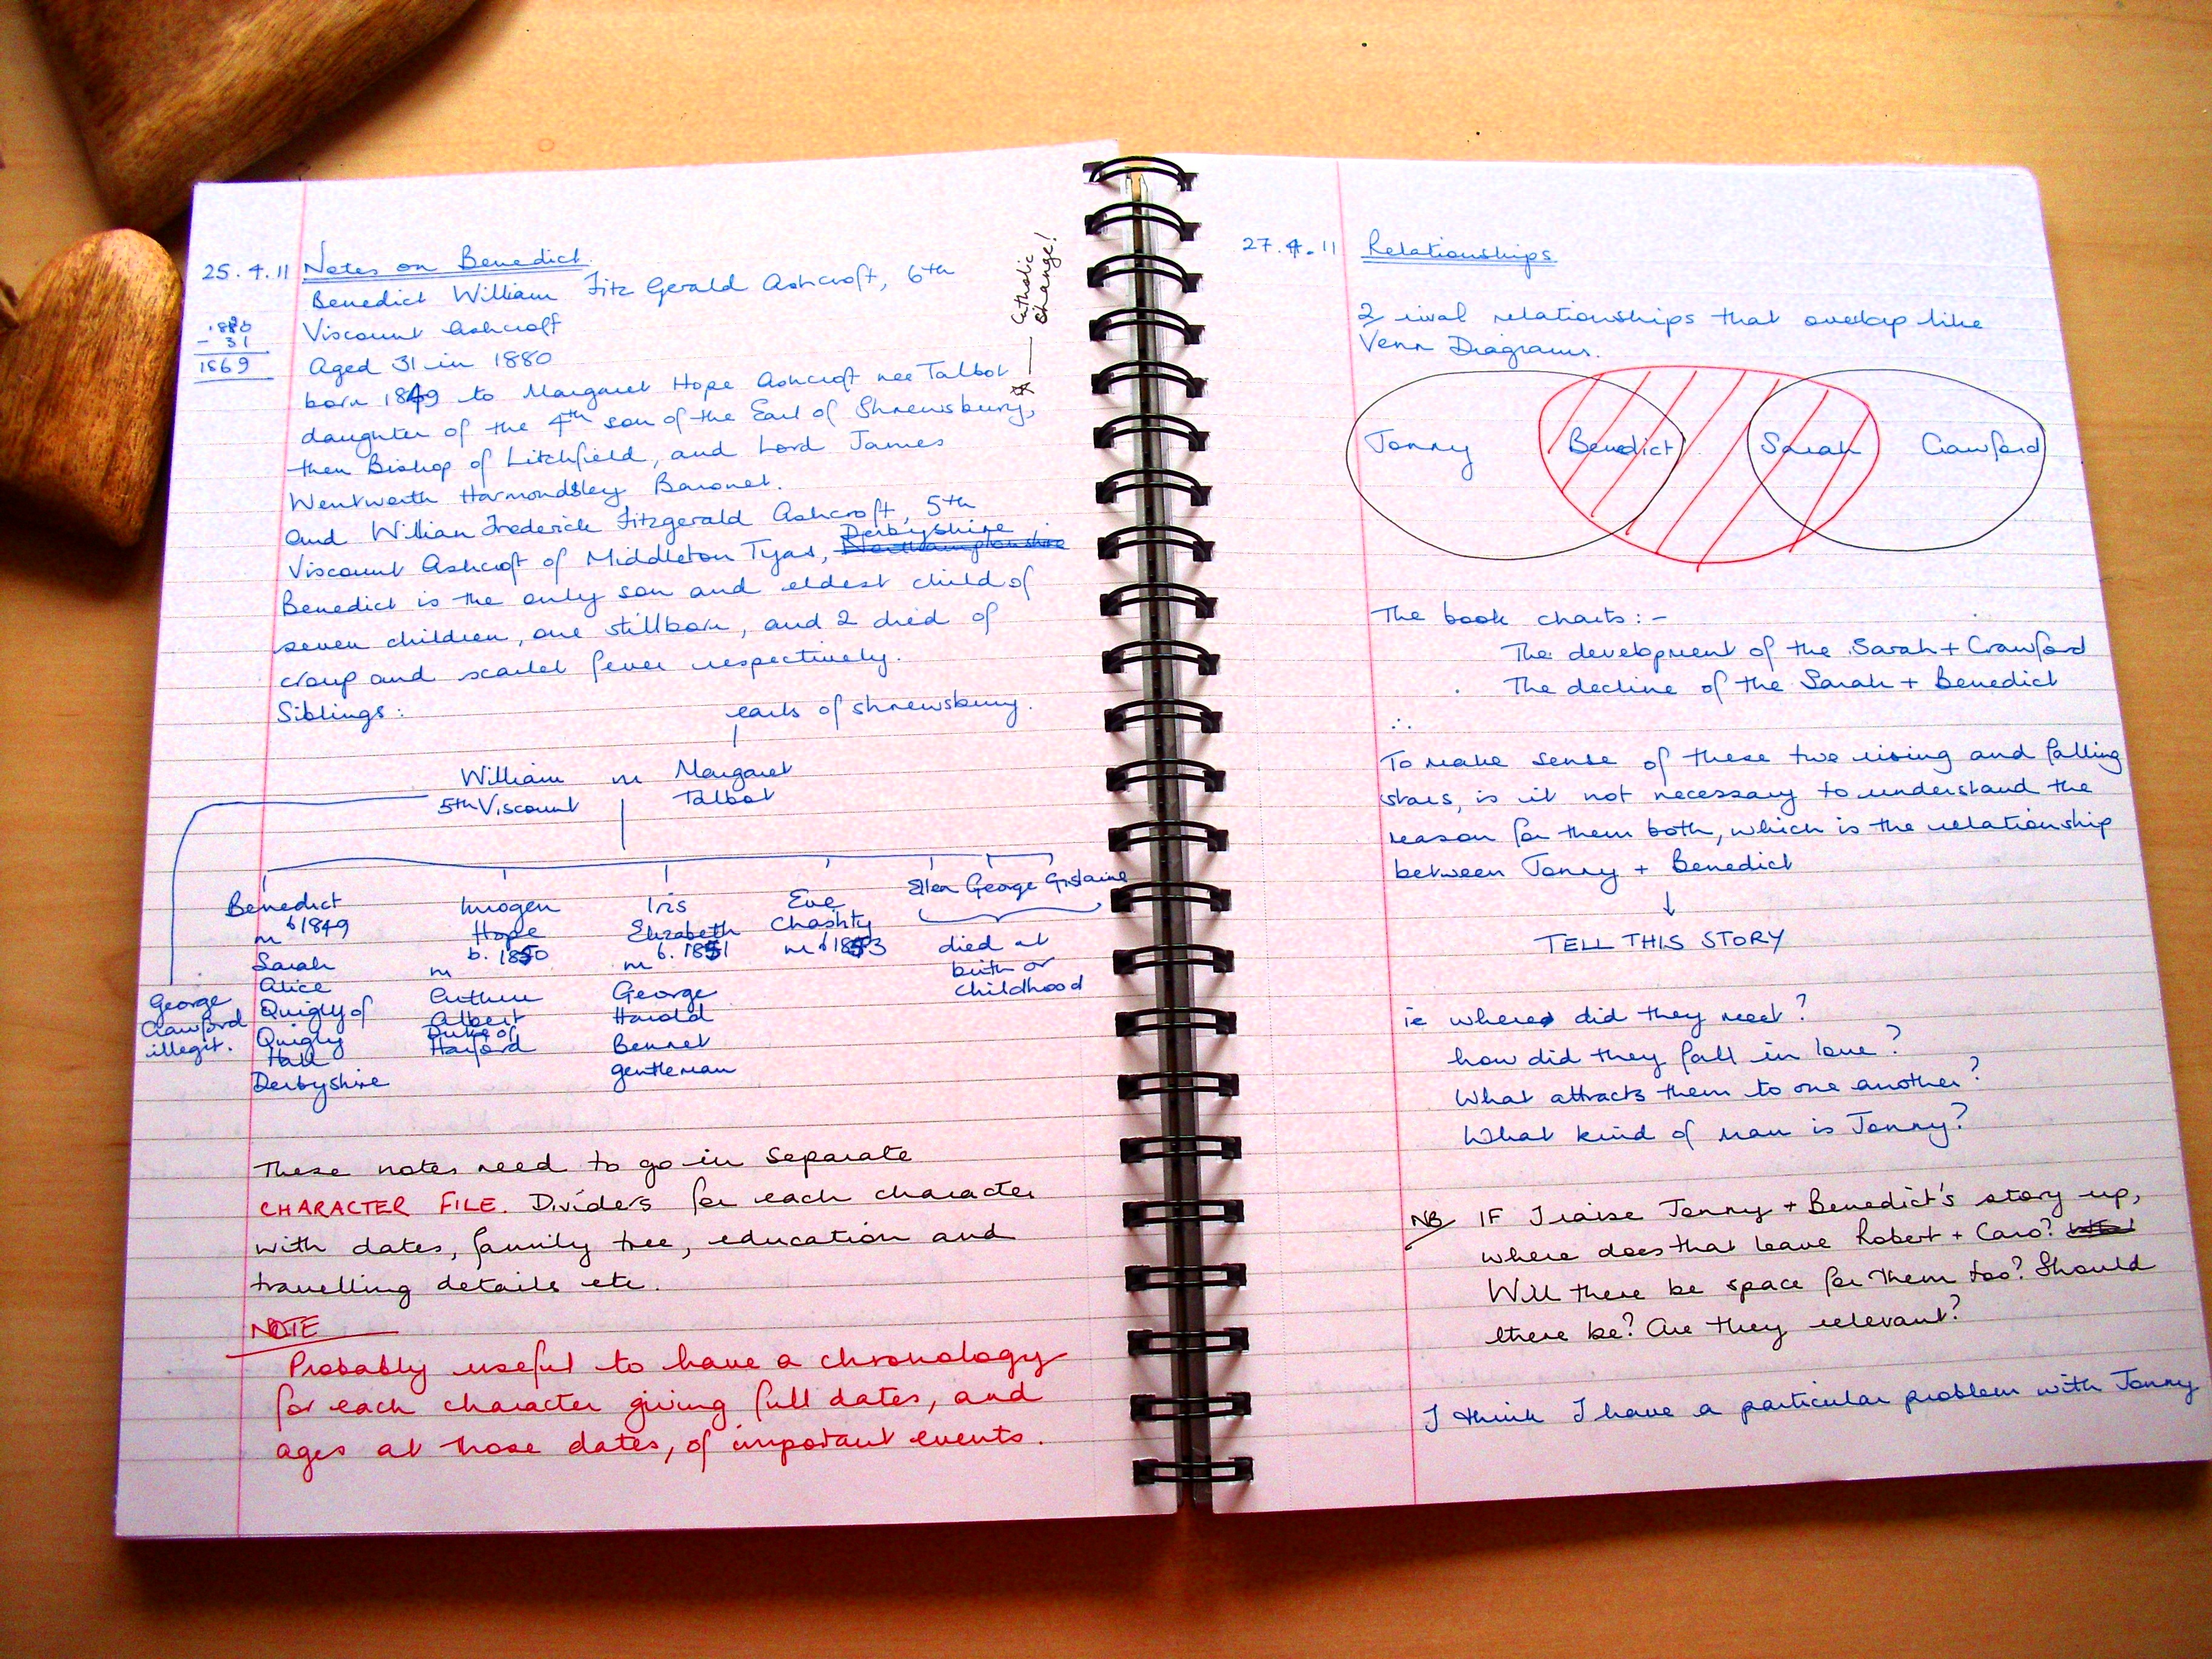 25.4.11 Notes on Benedict.
Benedict William Fitz Gerald Ashcroft, 6th
Viscount Ashcroft
1880
- 31
1869
Aged 31 in 1880
born 1849 to Margaret Hope Ashcroft nee Talbot
daughter of the 4th son of the Earl of Shrewsbury,
then Bishop of Litchfield, and Lord James
Wentworth Harmondsley Baronet.
and William Frederick Fitzgerald Ashcroft, 5th
Derbyshire
Viscount Ashcroft of Middleton Tyas, Northamptonshire
Benedict is the only son and eldest child of
seven children, one stillborn, and 2 died of
croup and scarlet fever respectively.
Catholic
change!
Siblings:
earls of shrewsbury.
William m Margaret
5th Viscount Talbot
Benedict
b 1849
m
Sarah
Alice
Quigly of
Quigly
Hall
Derbyshire
Imogen
Hope
b. 1850
m
Albert
Duke of
Iris
Elizabeth
b. 1851
m
George
Harold
Bennet
gentleman
Eve
Chastity
m b 1853
Ellen George Gislaine
died at
birth or
childhood
George
Crawford
illegit.
These notes need to go in separate
CHARACTER FILE. Dividers for each character
with dates, family tree, education and
travelling details etc.
NOTE
Probably useful to have a chronology
for each character giving full dates, and
ages at those dates, of important events.
27.4.11 Relationships.
2 rival relationships that overlap like
Venn Diagrams.
Jonny Benedict Sarah Crawford
The book charts:-
The development of the Sarah + Crawford
The decline of the Sarah + Benedict
∴
To make sense of these two rising and falling
stars, is it not necessary to understand the
reason for them both, which is the relationship
between Jonny + Benedict
↓
TELL THIS STORY
ie where did they meet?
how did they fall in love?
What attracts them to one another?
What kind of man is Jonny?
NB IF I raise Jonny + Benedict's story up,
where does that leave Robert + Caro?
Will there be space for them too? Should
there be? Are they relevant?
I think I have a particular problem with Jonny